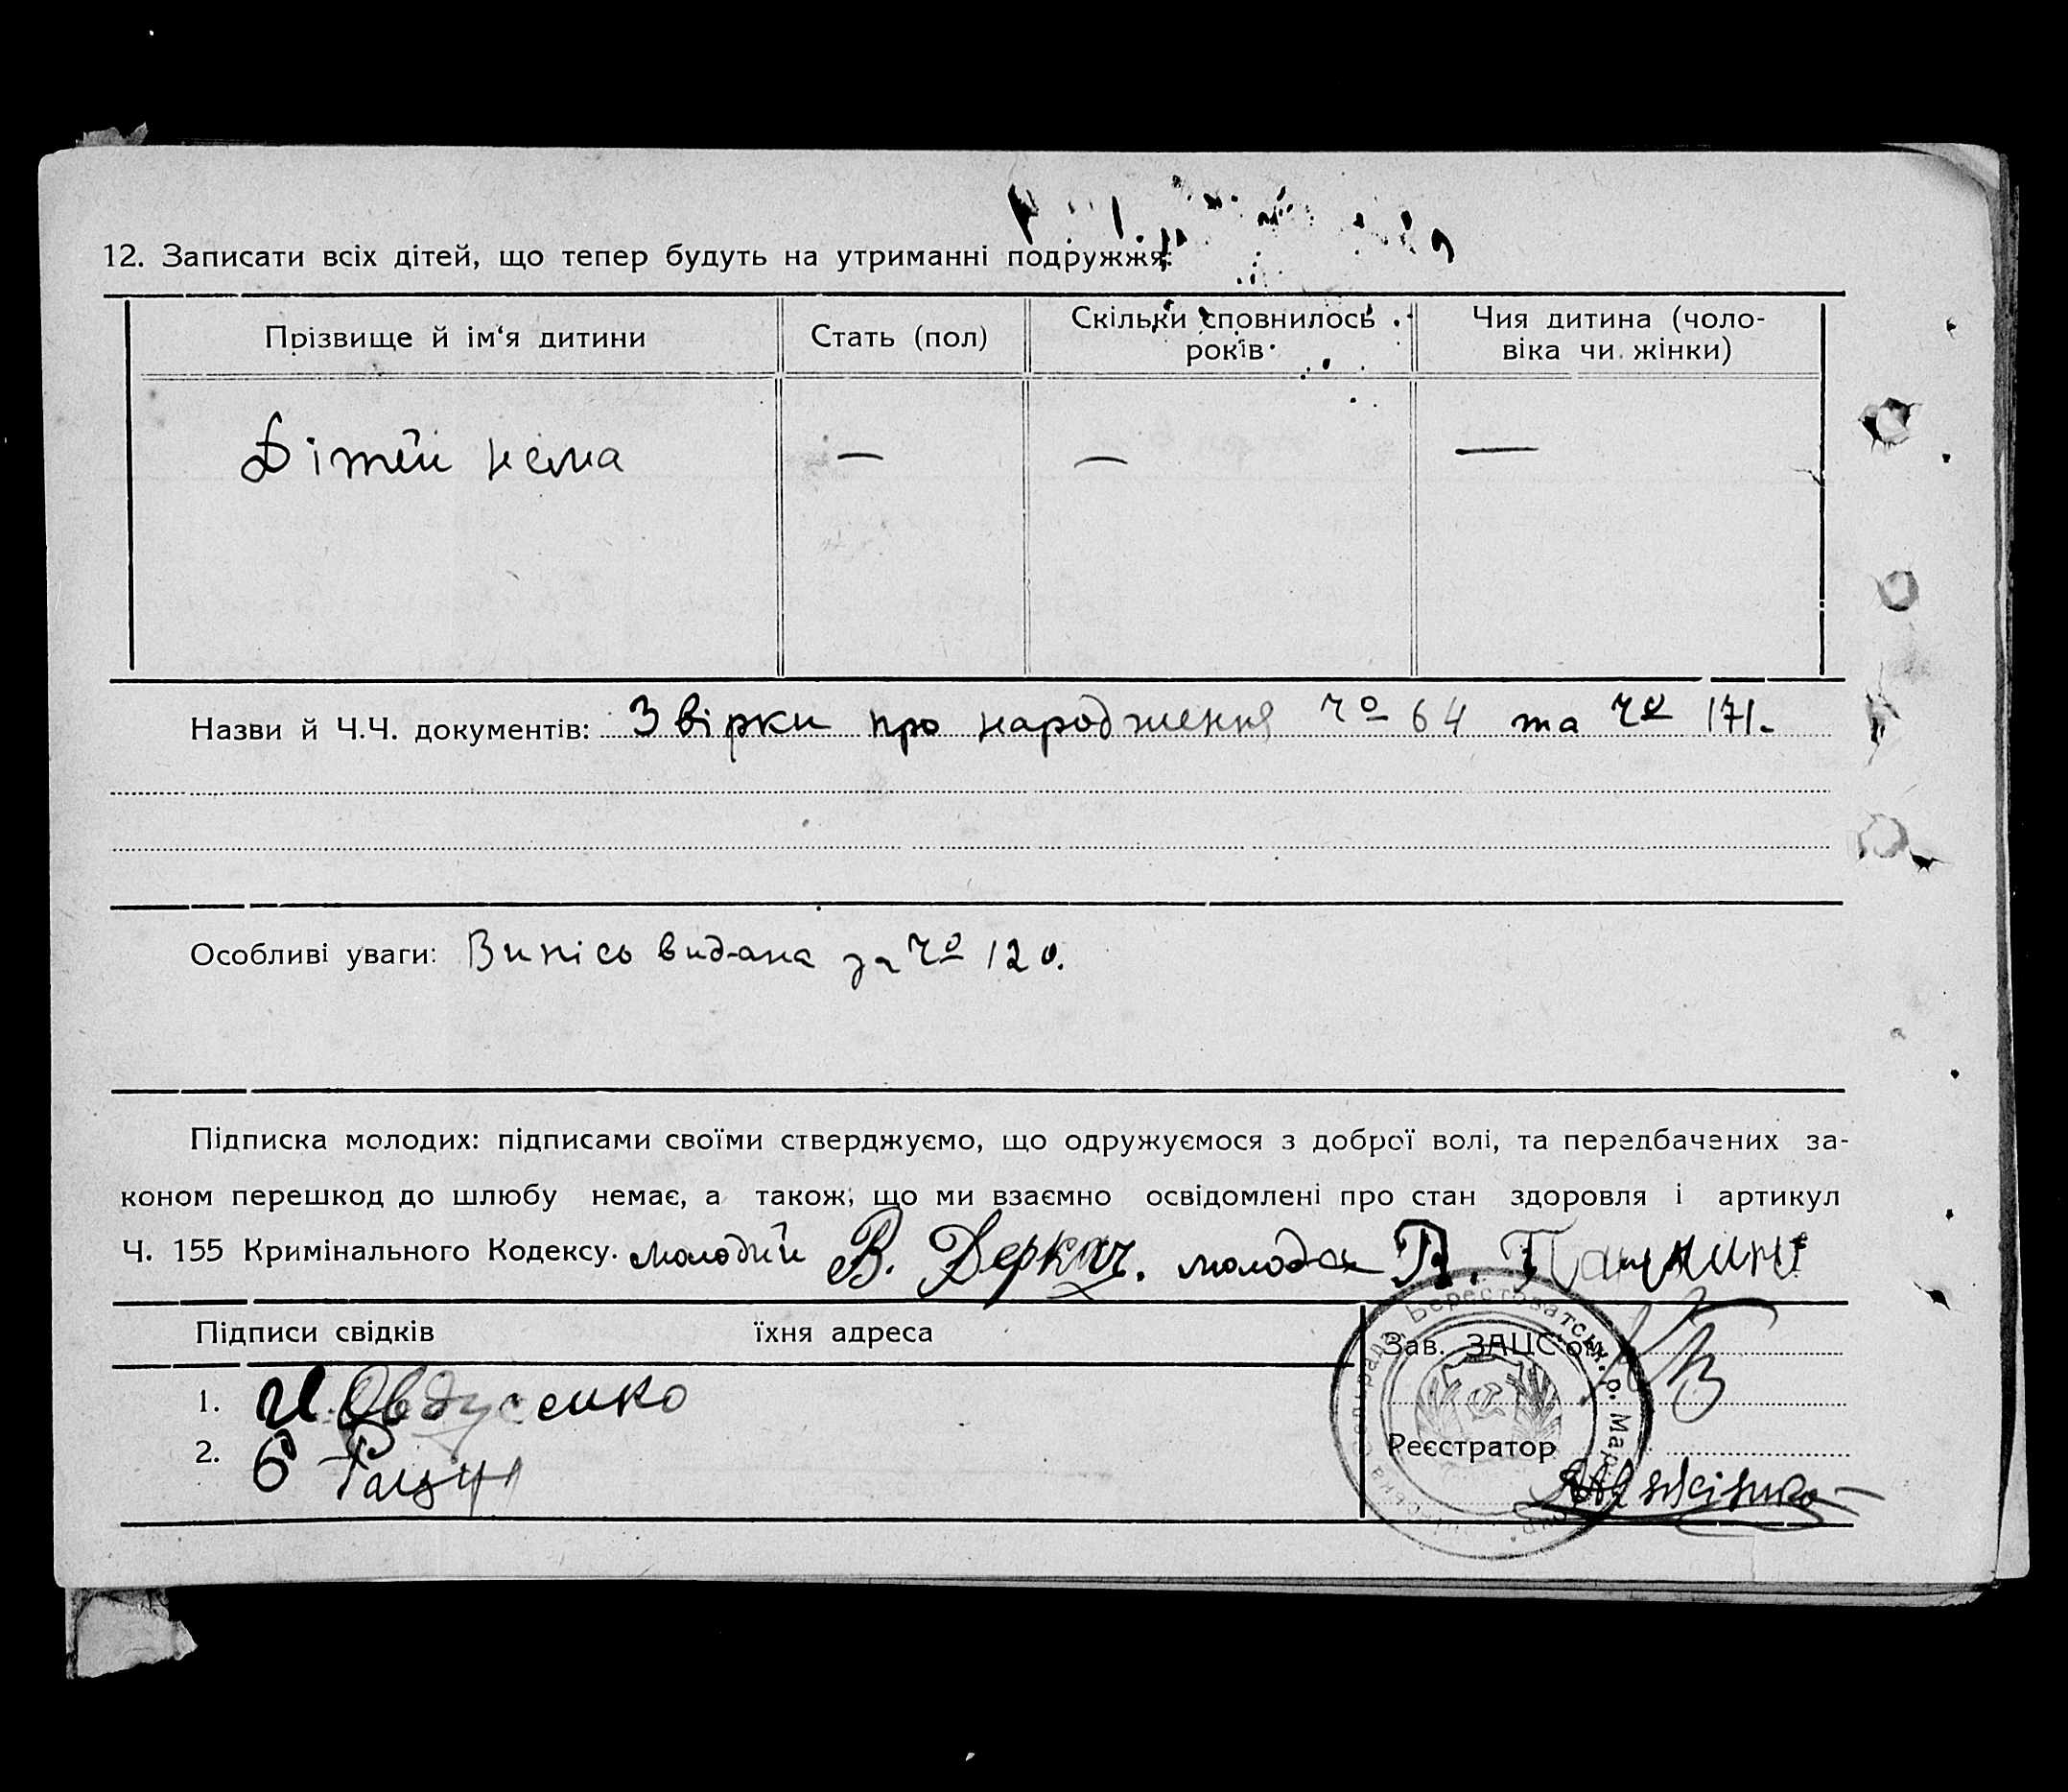 12. Записати всіх дітей, що тепер будуть на утриманні подружжя:
Прізвище й ім‘я дитини
Стать (пол)
Скільки сповнилось років
Чия дитина (чоло-
віка чи жінки)
Дітей нема — — —
Назви й Ч.Ч. документів: Звірки про народження чо 64 та чо 171.
Особливі уваги: Випісь видана за чо 120.
Підписка молодих: підписами своїми стверджуємо, що одружуємося з доброї волі, та передбачених за-
коном перешкод до шлюбу немає, а також, що ми взаємно освідомлені про стан здоровля і артикул
Ч. 155 Кримінального Кодексу. молодий В. Деркач. молода П.
Підписи свідків їхня адреса
Зав. ЗАЦС‘ом
1. И. Овдуенко
Реєстратор
2.
сільрада Берестоватськ. р. Мар